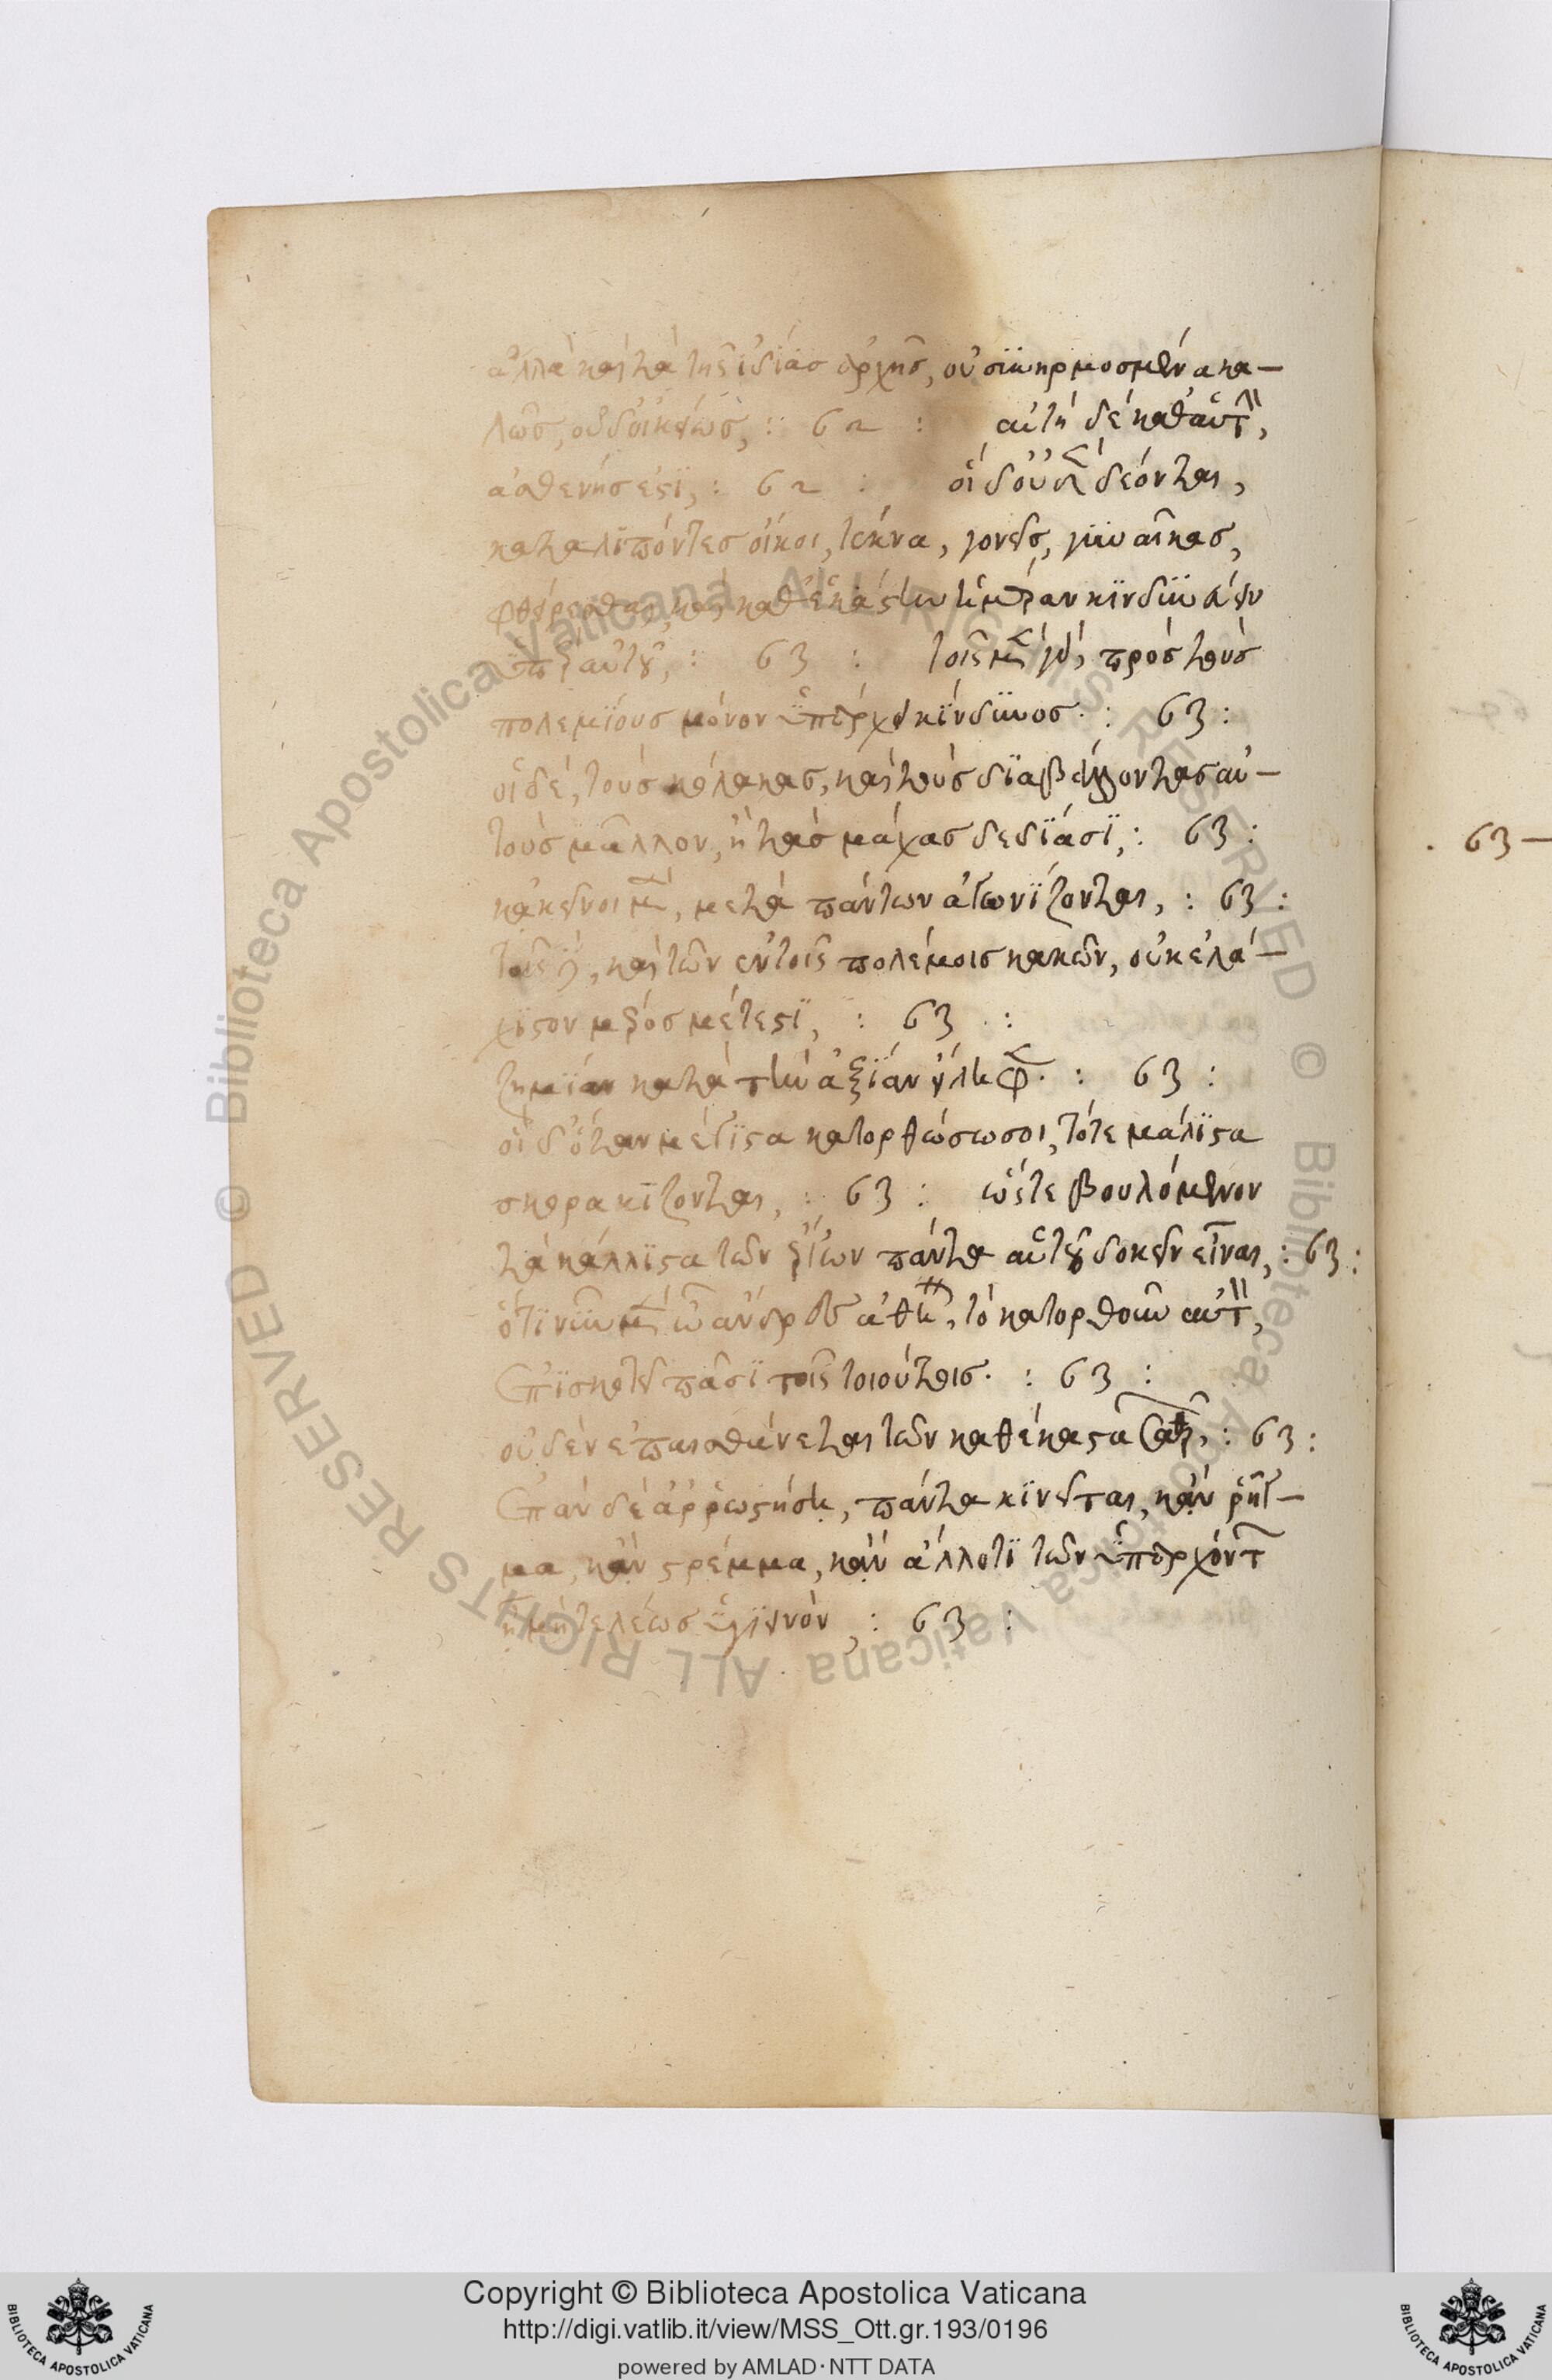 ἀλλὰ καὶ τὰ τῆς ἰδίας ἀρχῆς, οὐ συνηρμοσμένα κα-
λῶς, οὐ διοικεῖ : 62 : αὐτὴ δὲ καθ' αὑτ,
ἀσθενής ἐστϊ, : 62 : οἱ δ' οὖν δέονται,
καταλϊπόντες οἴκοι, τέκνα, γονεῖς, γϋναῖκας,
φθείρεσθαι, καὶ καθ' ἑκάστην ἡμέραν κϊνδϋνεύειν
ὑπὲρ αὐτοῦ, : 63 : τοῖς μὲν γὰρ, πρὸς τοὺς
πολεμϊους μόνον ὑπάρχει κϊνδϋνος· : 63 :
οἱ δὲ, τοὺς κόλακας, καὶ τοὺς δϊαβάλλοντας αὐ-
τοὺς μᾶλλον, ἢ τὰς μάχας δεδϊάσϊ, : 63 :
κἀκεῖνοι μὲν, μετὰ πάντων ἀγωνϊζονται, : 63 :
τοῖς , καὶ τῶν ἐν τοῖς πολέμοις κακῶν, οὐκ ἐλά-
χϊστον μέρος μέτεστϊ, : 63 :
ζημϊαν κατὰ τὴν ἀξϊαν εἴληφεν· : 63 :
οἱ δ' ὅταν μέγϊστα κατορθώσωσϊ, τότε μάλϊστα
σκορακϊζονται, : 63 : ὥστε βουλόμενον
τὰ κάλλϊστα τῶν ἔργων πάντα αὑτοῦ δοκεῖν εἶναι, : 63 :
ὅτϊ νῦν μὲν ὦ ἄνδρες ἀθη, τὸ κατορθοῦν αὐτ,
ἐπϊσκοτεῖ πᾶσϊ τοῖς τοιούτοις· : 63 :
οὐδὲν ἐπαισθάνεται τῶν καθ' ἕκαστα σαθρῶν, : 63 :
ἐπὰν δὲ ἀῤῥωστήσῃ, πάντα κϊνεῖται, κἂν ῥῆγ-
μα, κἂν στρέμμα, κἂν ἄλλο τϊ τῶν ὑπαρχόντ
ἢ μὴ τελέως ὑγϊεινὸν, : 63 :
63 —
Copyright © Biblioteca Apostolica Vaticana
http://digi.vatlib.it/view/MSS_Ott.gr.193/0196
powered by AMLAD·NTT DATA
BIBLIOTECA APOSTOLICA VATICANA
BIBLIOTECA APOSTOLICA VATICANA
© Biblioteca Apostolica Vaticana ALL RIGHTS RESERVED © Biblioteca Apostolica Vaticana ALL RIGHTS RESERVED